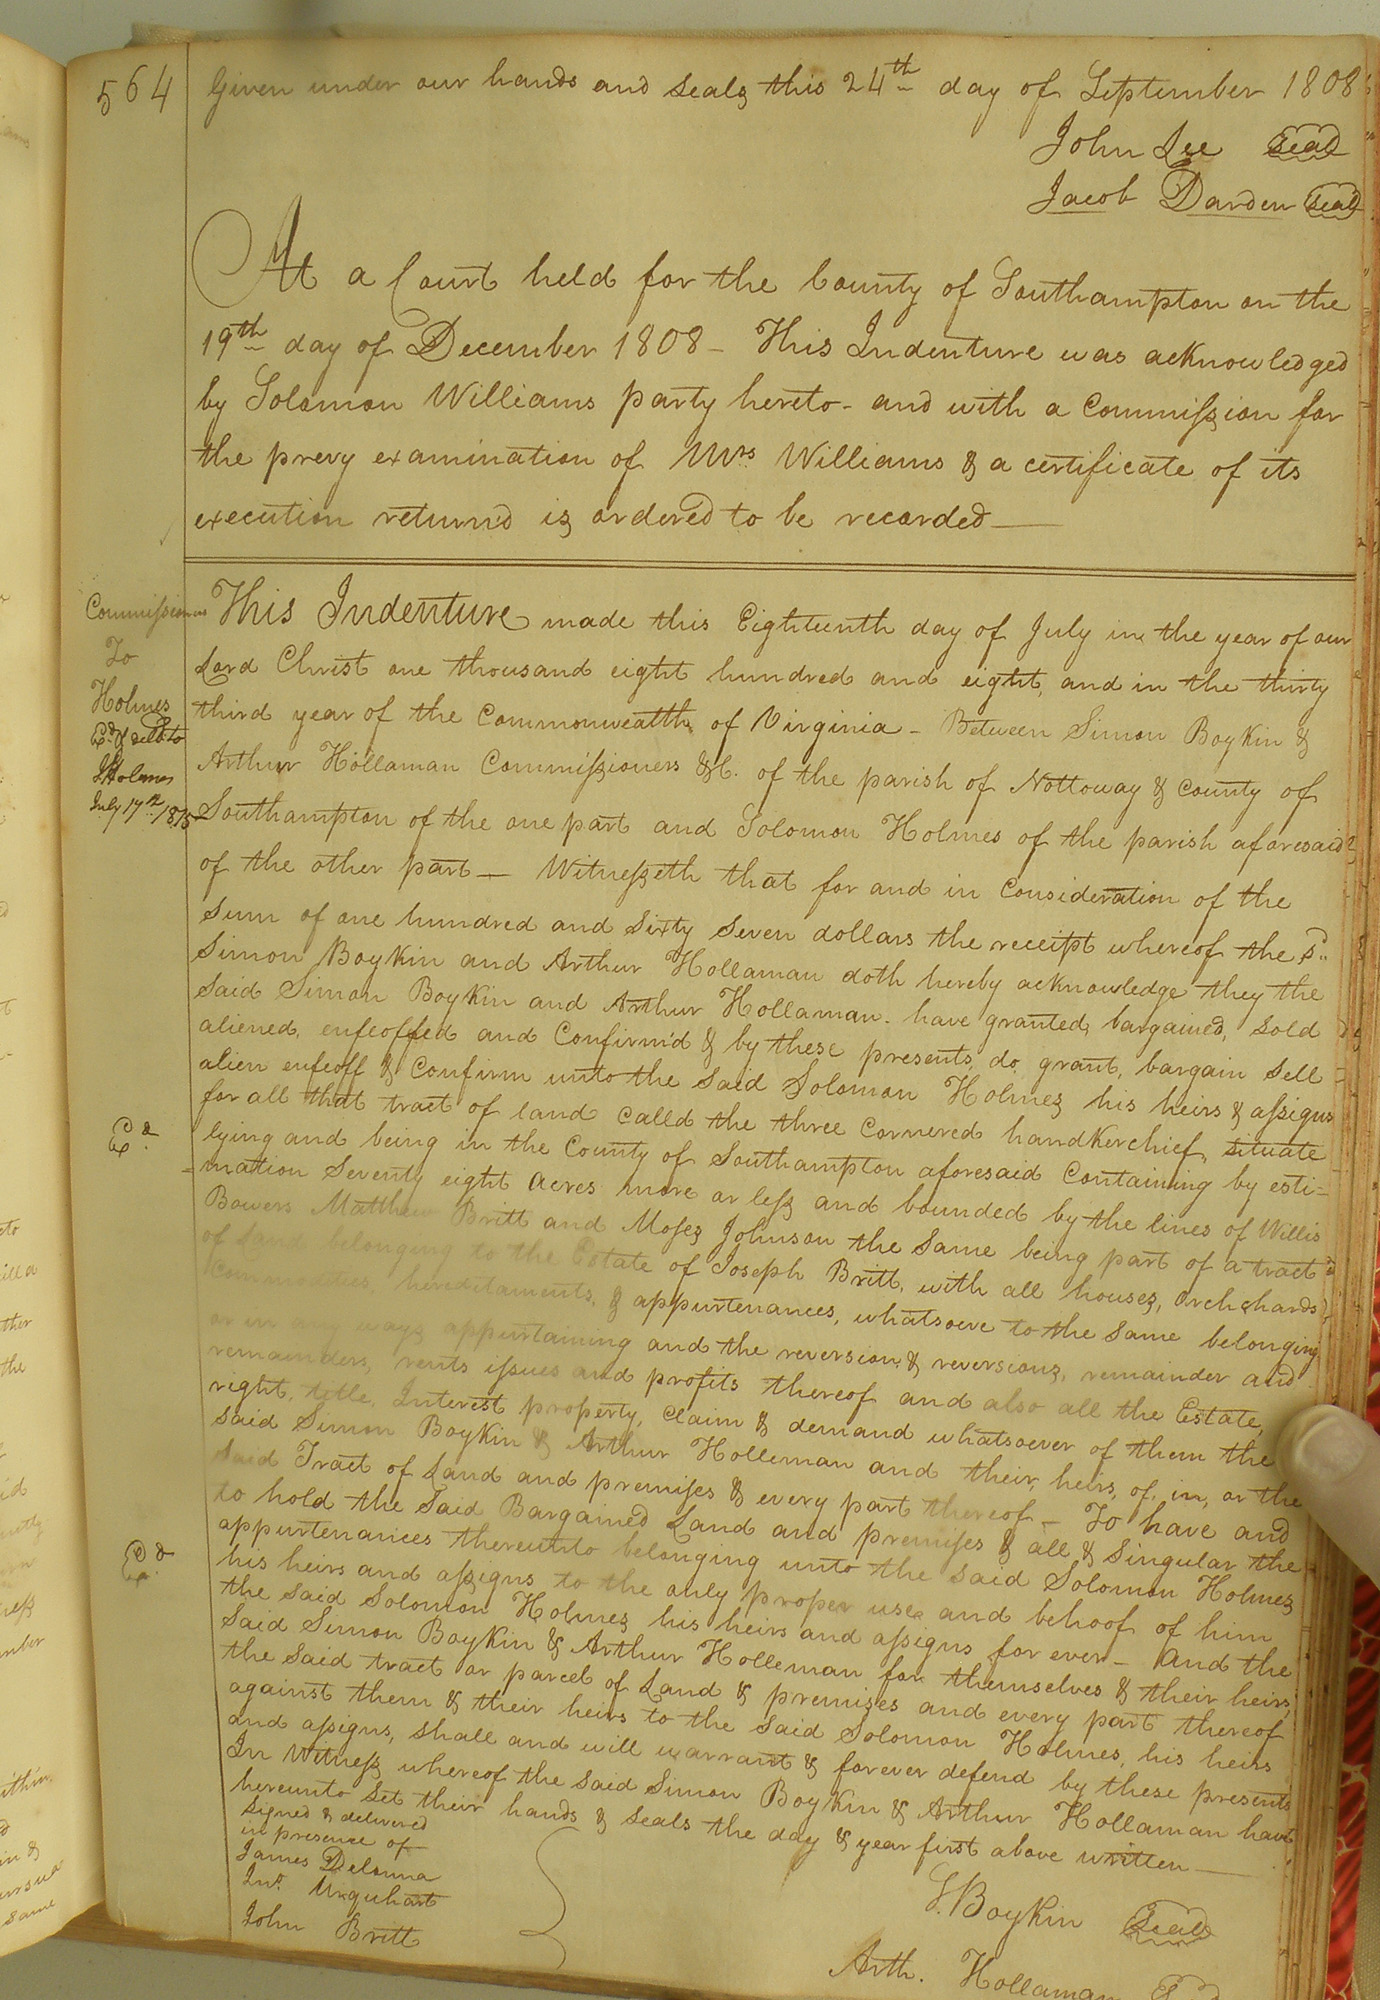 564
Given under our hands and seals this 24th day of September 1808
John Lee seal
Jacob Darden seal
At a Court held for the County of Southampton on the
19th day of December 1808 - This Indenture was acknowledged
by Solomon Williams party hereto - and with a Commission for
the prevy examination of Mrs Williams & a certificate of its
execution return'd is ordered to be recorded
Commissioners
To
Holmes
Ed. & deld to
Holmes
July 17th 1815
This Indenture made this Eighteenth day of July in the year of our
Lord Christ one thousand eight hundred and eight, and in the thirty
third year of the Commonwealth of Virginia - Between Simon Boykin &
Arthur Hollaman Commissioners &c. of the parish of Nottoway & County of
Southampton of the one part and Solomon Holmes of the parish aforesaid
of the other part - Witnesseth that for and in Consideration of the
Sum of one hundred and Sixty Seven dollars the receipt whereof the sd.
Simon Boykin and Arthur Hollaman doth hereby acknowledge they the
Said Simon Boykin and Arthur Hollaman. have granted, bargained, Sold
aliened, enfeoffed and Confirm'd & by these presents, do, grant, bargain Sell
alien enfeoff & Confirm unto the Said Solomon Holmes his heirs & assigns
for all that tract of land calld the three Cornered handKerchief, Situate
lying and being in the County of Southampton aforesaid Containing by esti=
mation Seventy eight Acres more or less and bounded by the lines of Willis
Bowers Matthew Britt and Moses Johnson the Same being part of a tract
of Land belonging to the Estate of Joseph Britt, with all houses, Orchehards
Commodities hereditaments, & appurtenances, whatsoeve to the Same belonging
or in any ways appurtaining and the reversion & reversions, remainder and
remainders, rents issues and profits thereof and also all the Estate,
right, title, Interest property, Claim & demand whatsoever of them the
Said Simon Boykin & Arthur Holleman and their, heirs, of, in, or the
Said Tract of Land and premises & every part thereof - To have and
to hold the Said Bargained Land and premises & all & Singular the
appurtenances thereunto belonging unto the Said Solomon Holmes
his heirs and assigns to the only proper use and behoof of him
the Said Solomon Holmes his heirs and assigns for ever - And the
Said Simon Boykin & Arthur Holleman for themselves & their heirs,
the Said tract or parcel of Land & premises and every part thereof
against them & their heirs to the Said Solomon Holmes, his heirs
and assigns, Shall and will warrant & forever defend by these presents
In Witness whereof the Said Simon Boykin & Arthur Hollaman have
hereunto Set their hands & Seals the day & year first above written
Ed.
Ed.
Signed & delivered
in presence of
James Delanna
Jno. Urquhart
John Britt
S. Boykin Seal
Arth. Hollaman